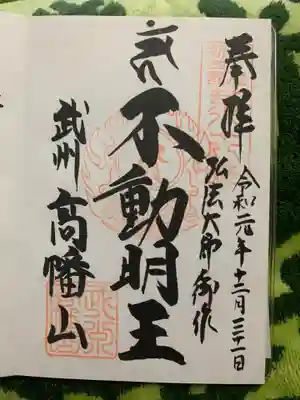 奉拝
令和元年十二月三十一日
弘法大師御作
不動明王
武州
高幡山